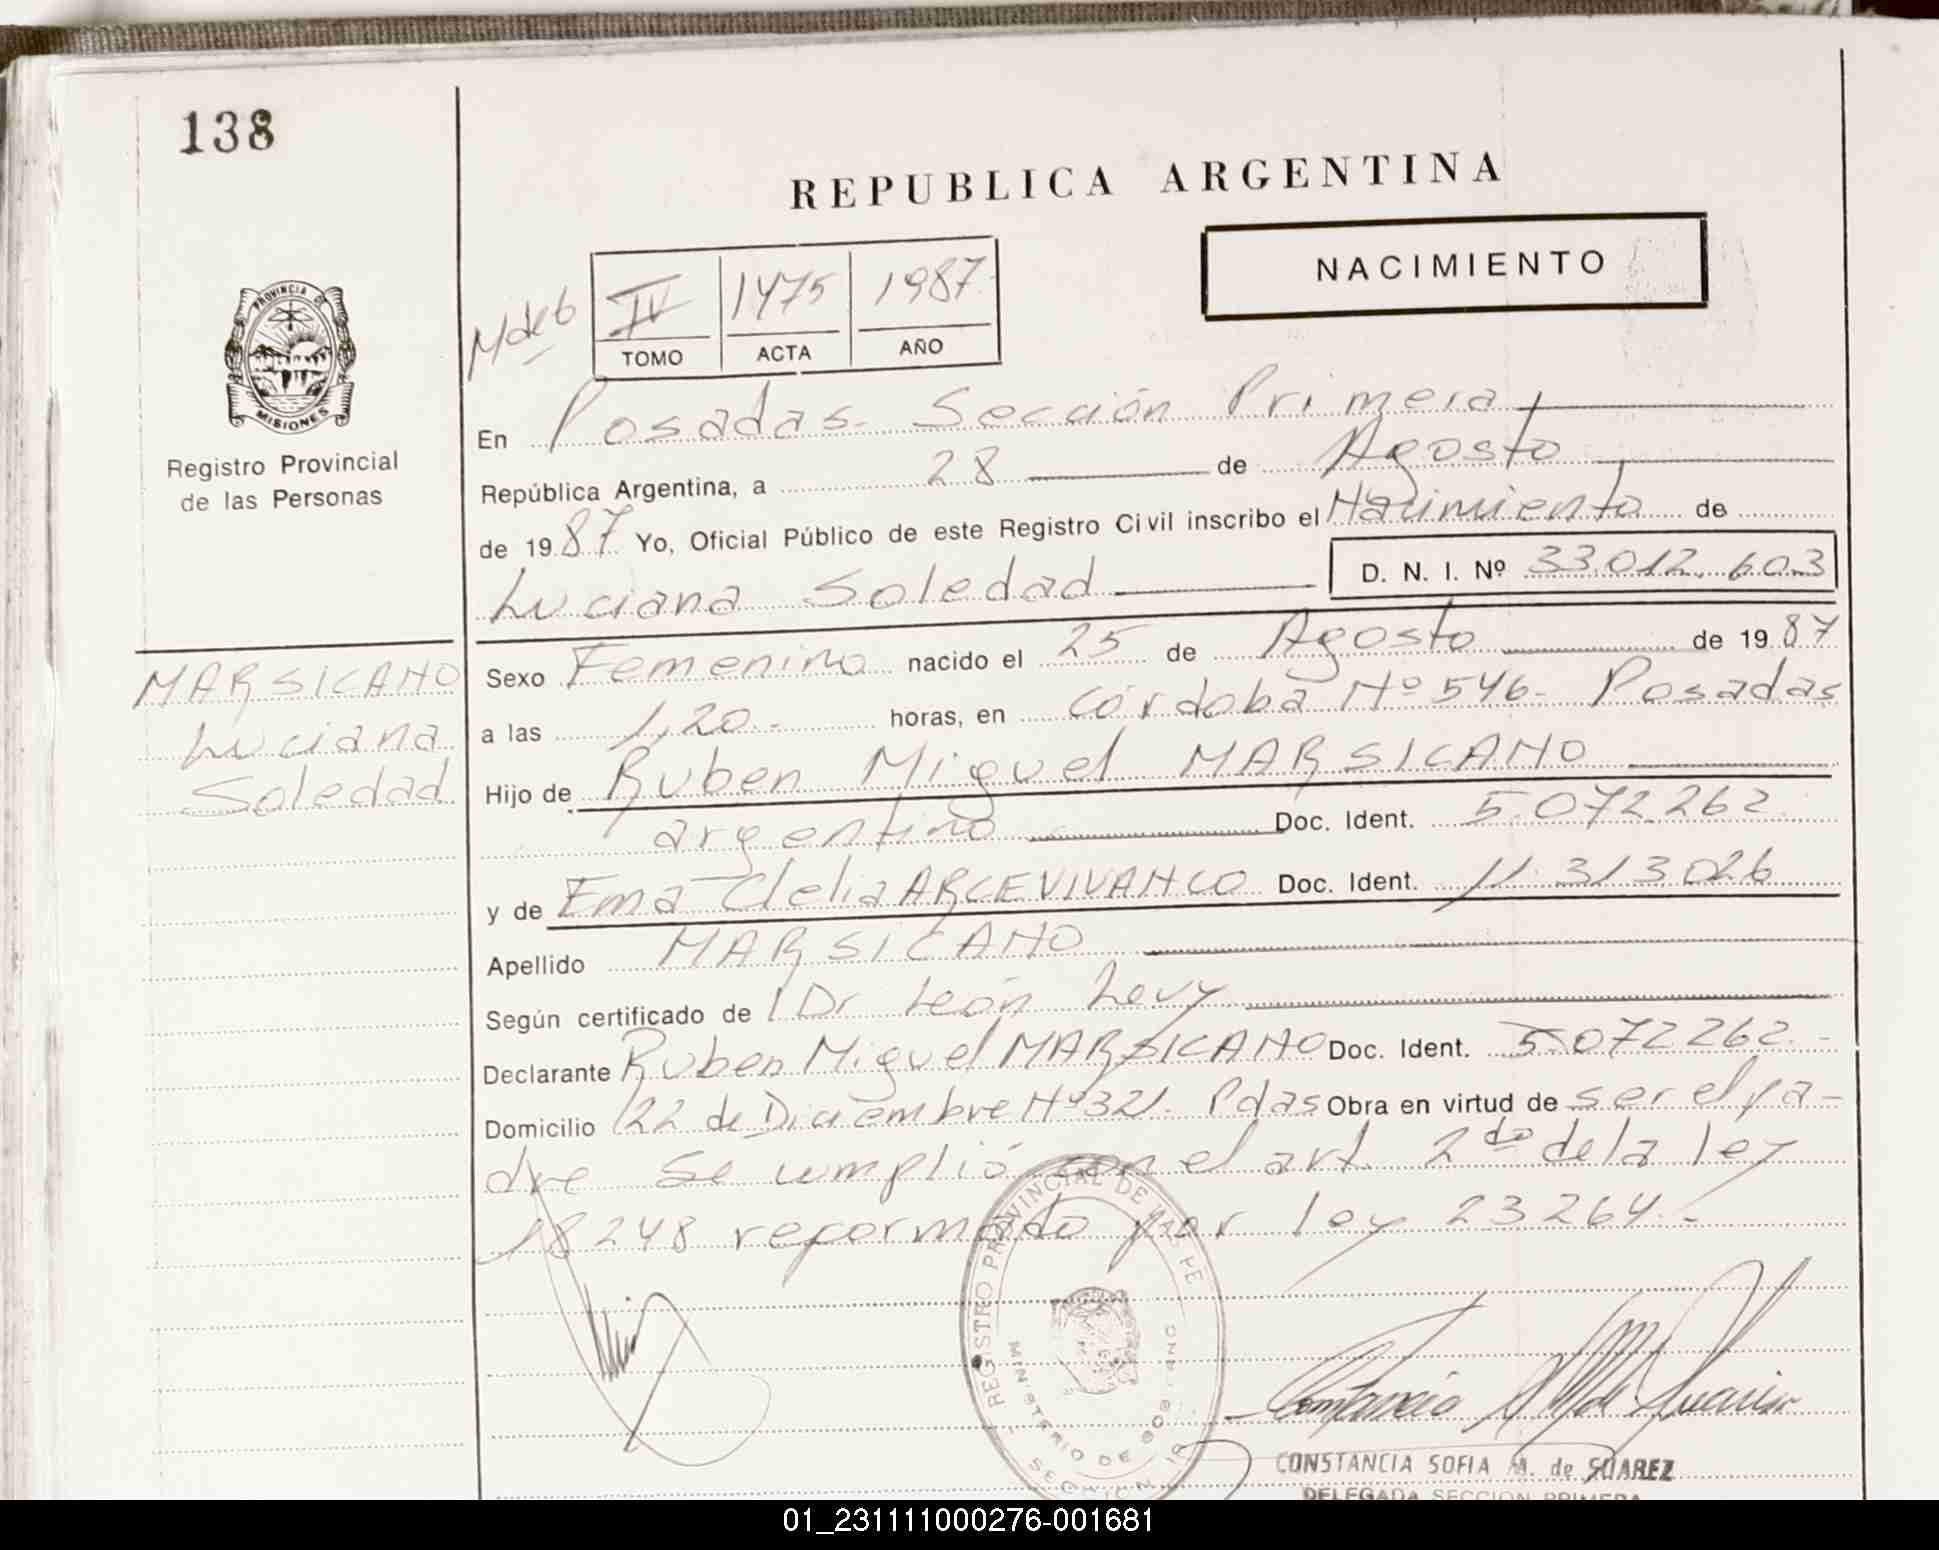 138
REPUBLICA ARGENTINA
NACIMIENTO
IV 1475 1987
TOMO ACTA AÑO
PROVINCIA DE
MISIONES
Registro Provincial
de las Personas
En Posadas. Sección Primera
República Argentina, a 28 de Agosto
de 1987 Yo, Oficial Público de este Registro Civil inscribo el Nacimiento de
Luciana Soledad D. N. I. Nº 33.012.603
MARSICANO
Luciana
Soledad
Sexo Femenino nacido el 25 de Agosto de 1987
a las 1,20.- horas, en Córdoba Nº 546- Posadas
Hijo de Ruben Miguel MARSICANO
argentino Doc. Ident. 5.072.262
y de Ema Clelia ARCE VIVANCO Doc. Ident. 11.313.026
Apellido MARSICANO
Según certificado de Dr León Levy
Declarante Ruben Miguel MARSICANO Doc. Ident. 5.072262.-
Domicilio 22 de Diciembre Nº 321. Pdas Obra en virtud de ser el pa-
dre se cumplió con el art. 2do de la ley
18248 reformado por ley 23264.-
REGISTRO PROVINCIAL DE LAS PE
MINISTERIO DE GOBIERNO
SECCION 1ª
CONSTANCIA SOFIA M. de SUAREZ
DELEGADA SECCION PRIMERA
01_231111000276-001681